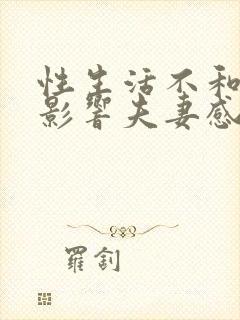 性生活不和
影響夫妻感
羅釗